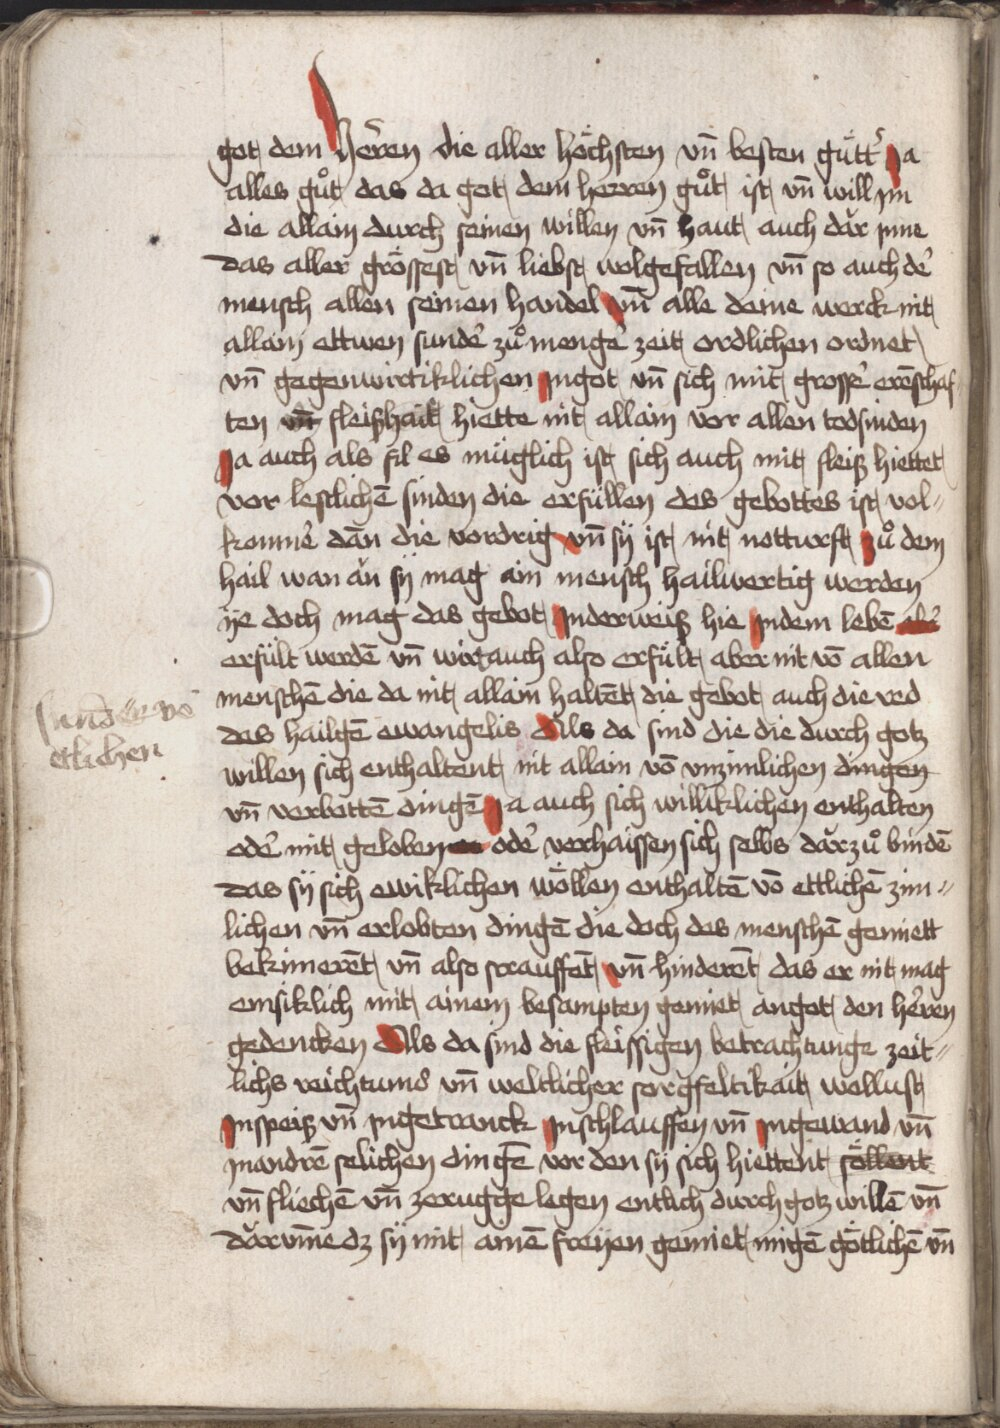 got dem herren die aller höchsten vn̄ besten gütt' Ja
alles gůt das da got dem herren gůt ist vn̄ will jm
die allain durch seinen willen vn̄ haut auch dar jnne
das aller grössest vn̄ liebst wolgefallen vn̄ so auch de'
mensch allen seinen handel vn̄ alle deine werck nit
allain ettwen sunde' zů menge' zeit ordlichen ordnet
vn̄ gegenwirtiklichen Jn got vn̄ sich mit grosse' erēschaf
ten vn̄ fleißhait hiette nit allain vor allen todsinden
Ja auch als fil es müglich ist sich auch mit fleiß hiettet
vor leslichē sinden die erfüllen des gebottes ist vol-
komne' dān die vordrig vn̄ sÿ ist nit notturft zů dem
hail wan ān sÿ mag ain mensch hailwertig werden
ÿe doch mag das gebot Jn der weiß hie Jn dem lebē abe'
erfült werdē vn̄ wirt auch also erfült aber nit vō allen
menschē die da nit allain haltēt die gebot auch die red
sunder vō
etlichen
des hailgē ewangelis Als da sind die die durch gotz
willen sich enthaltent nit allain vō vnzimlichen dingen
vn̄ verbottē dingē Ja auch sich williklichen enthalten
ode' mit geloben ode' verhaissen sich selbs darzů bindē
das sÿ sich ewiklichen wöllen enthaltē vō ettlichē zim-
lichen vn̄ erlobten dingē die doch des menschē gemiett
bekimerēt vn̄ also strauffēt vn̄ hinderēt das er nit mag
emsiklich mit ainem besampten gemiet an got den herren
gedencken Als da sind die fleissigen betrachtunge zeit-
lichs reichtums vn̄ weltlicher sorgfeltikait wollust
Jn speiß vn̄ jn getranck Jn schlauffen vn̄ Jn gewand vn̄
jn andrē selichen dingē vor den sÿ sich hiettent söllent
vn̄ fliechē vn̄ zerugge legen entlich durch gotz willē vn̄
darvmē dz sÿ mit ainē freÿen gemiet migē götlichē vn̄